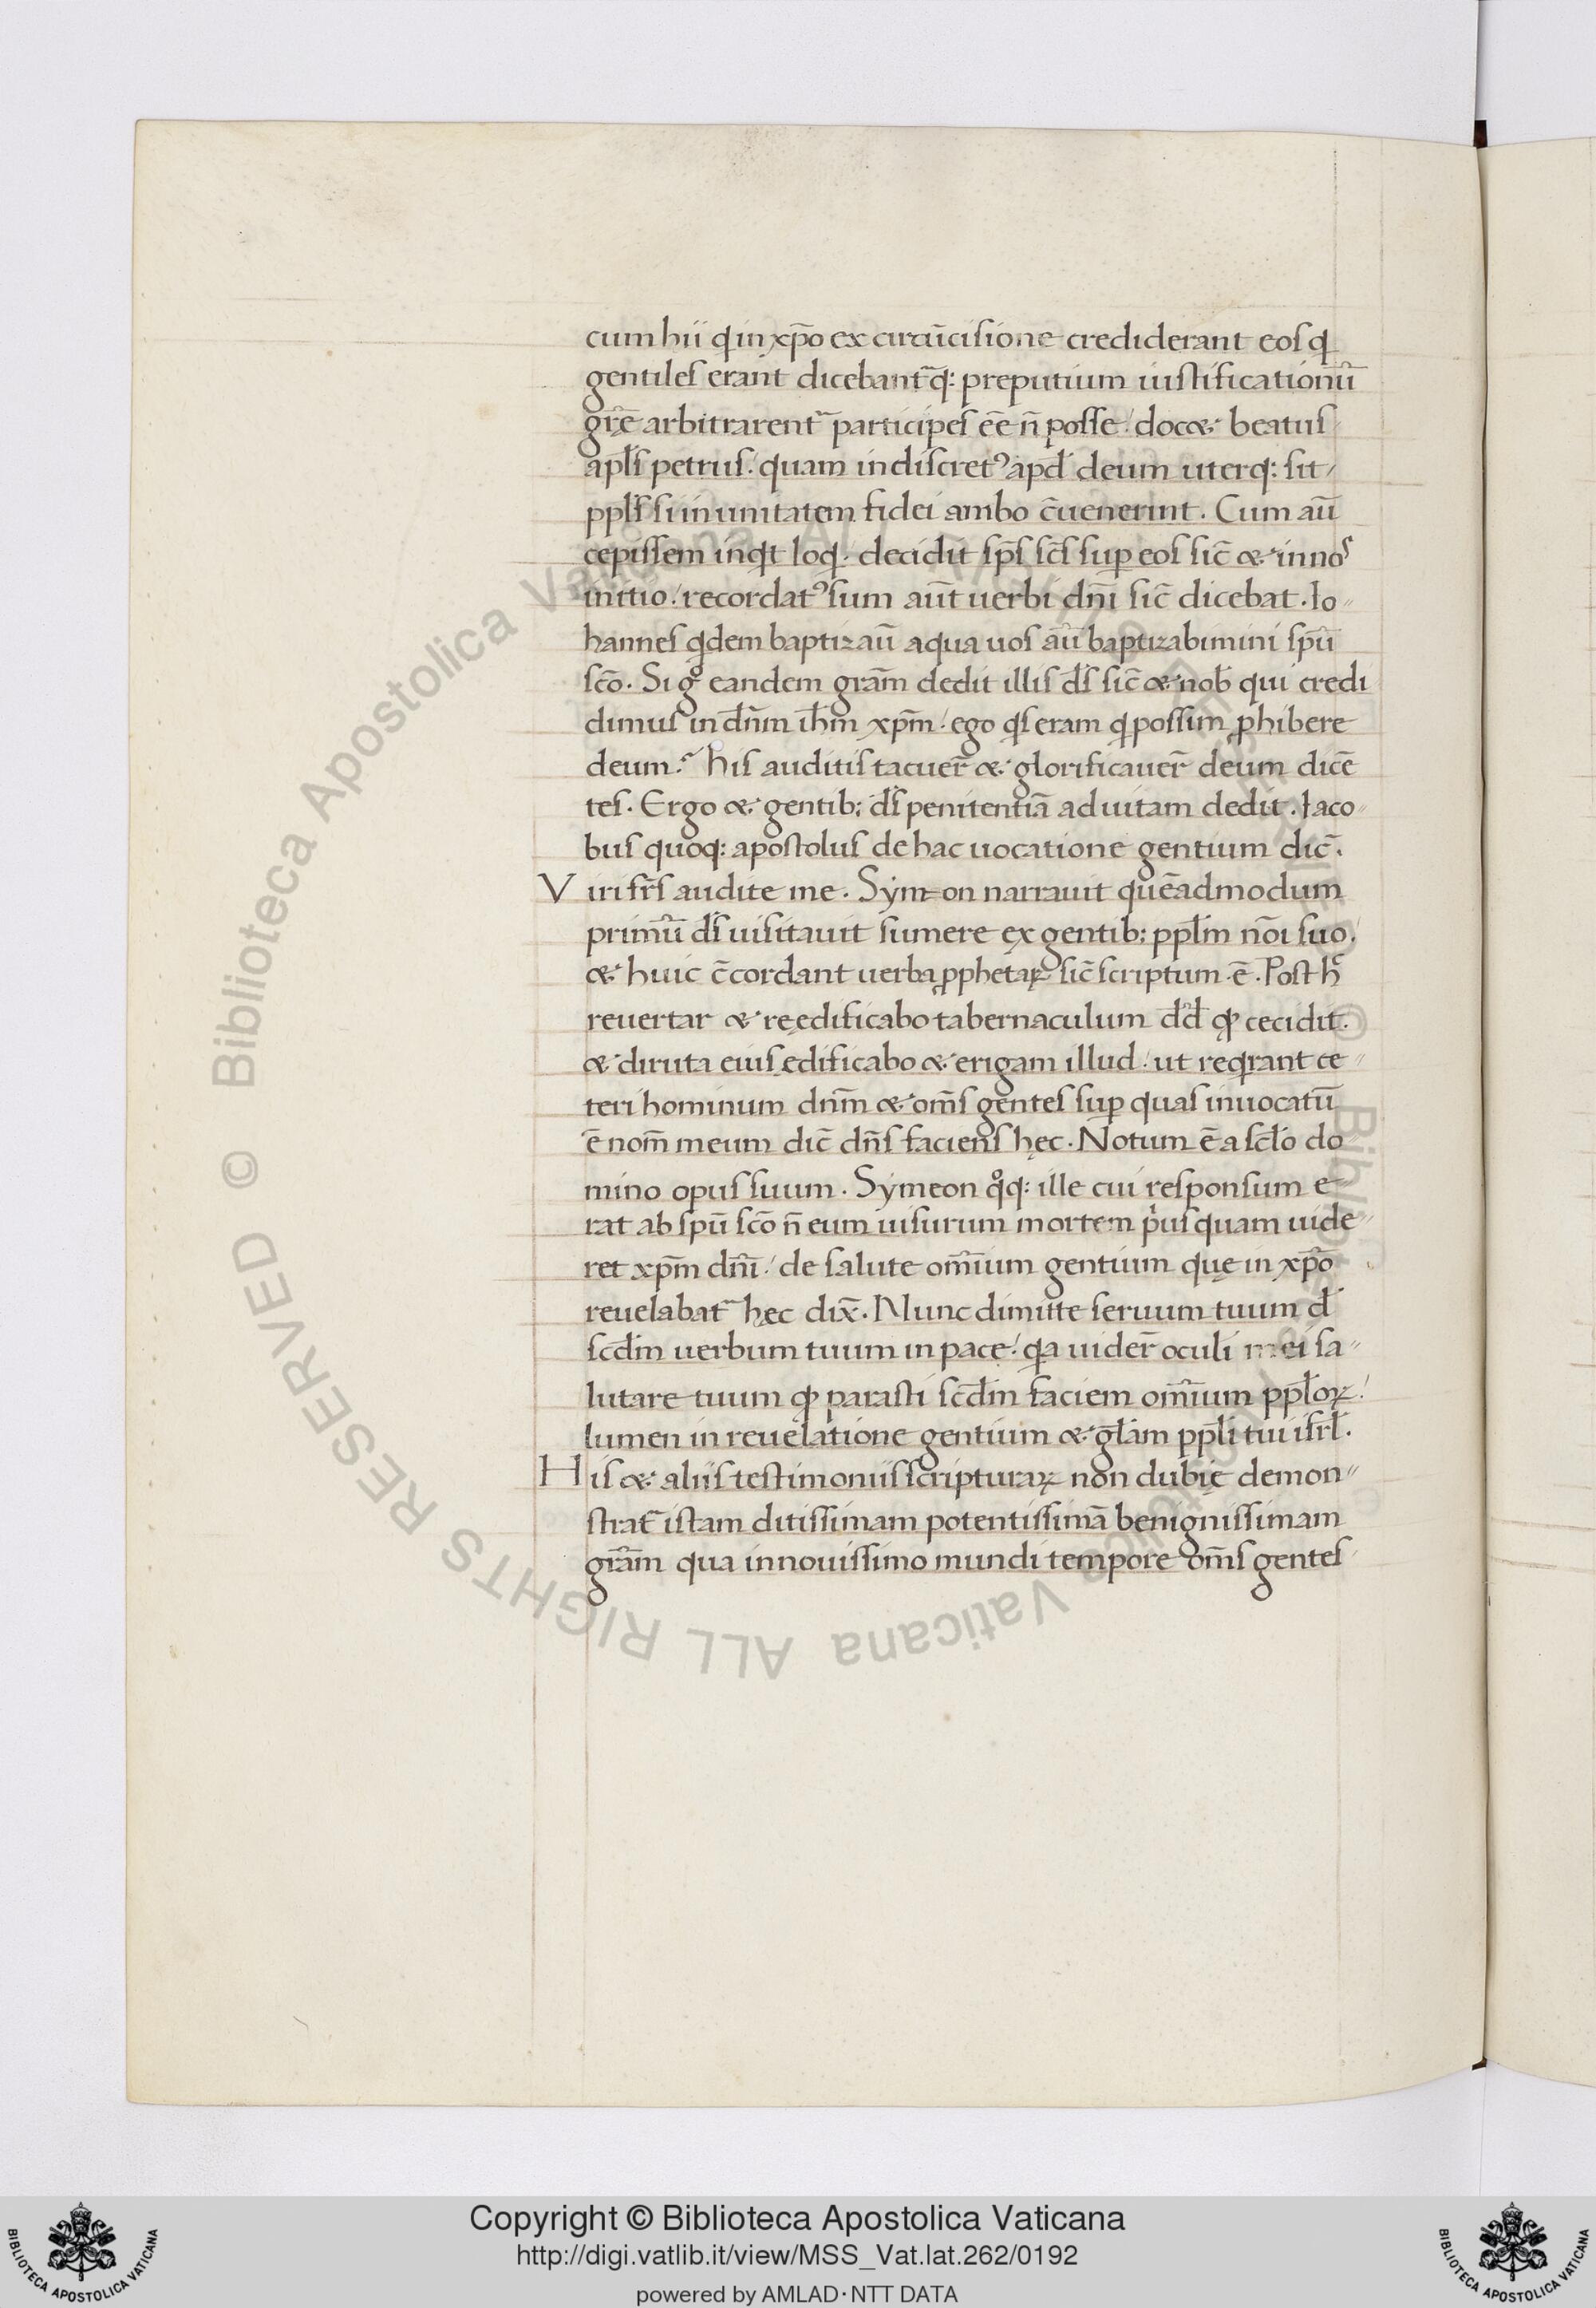 cum hii q̇ in xp̄o ex circūcisione crediderant eos q̇
gentiles erant dicebantᷣ q̄: preputium iustificationū
grę̄ arbitrarentᷣ participes ēē n̄ posse. docet beatus
apl̄s petrus. quam indiscretꝰ apđ deum uterq: sit
ppl̄s si in unitatem fidei ambo c̄uenerint. Cum aū
cepissem inq̇t loq̇. decidit sp̄s sc̄s suꝑ eos sic̄ & in nos
initio. recordatꝰ sum aūt uerbi dn̄i sic̄ dicebat. Io〃
hannes q̇dem baptizaū aqua uos aū baptizabimini sp̄u
sc̄o. Si gͦ eandem grām dedit illis ds̄ sic̄ & nob̄ qui credi
dimus in dn̄m ih̄m xp̄m. ego q̇s eram q̇ possim ꝓhibere
deum? his auditis tacuer̄ & glorificauer̄ deum dicē
tes. Ergo & gentib; ds̄ penitentiā ad uitam dedit. Iaco〃
bus quoq: apostolus de hac uocatione gentium dic̄.
Viri fr̄s audite me. Symeon narrauit quēadmodum
primū ds̄ uisitauit sumere ex gentib; ppl̄m nōi suo.
& huic c̄cordant uerba ꝓphetaꝝ sic̄ scriptum ē. Post hͨ
reuertar & reędificabo tabernaculum dd̄ qđ cecidit.
& diruta eius ędificabo & erigam illud. ut req̇rant ce〃
teri hominum dn̄m & om̄s gentes suꝑ quas inuocatū
ē nom̄ meum dic̄ dn̄s faciens hęc. Notum ē a scl̄o do
mino opus suum. Symeon qͦq: ille cui responsum e
rat ab sp̄u sc̄o n̄ eum uisurum mortem pͥus quam uide〃
ret xp̄m dn̄i. de salute om̄ium gentium quę in xp̄o
reuelabatᷣ hęc dix̄. Nunc dimitte seruum tuum d̄
scd̄m uerbum tuum in pace. q̇a uider̄ oculi mei sa〃
lutare tuum qđ parasti scd̄m faciem om̄ium ppl̄oꝝ.
lumen in reuelatione gentium & gl̄am ppl̄i tui isrl̄.
His & aliis testimoniis scripturaꝝ non dubię demon〃
stratᷣ istam ditissimam potentissimā benignissimam
grām qua in nouissimo mundi tempore om̄s gentes
© Biblioteca Apostolica Vaticana ALL RIGHTS RESERVED
© Biblioteca Apostolica Vaticana ALL RIGHTS RESERVED
Copyright © Biblioteca Apostolica Vaticana
http://digi.vatlib.it/view/MSS_Vat.lat.262/0192
powered by AMLAD·NTT DATA
BIBLIOTECA APOSTOLICA VATICANA
BIBLIOTECA APOSTOLICA VATICANA